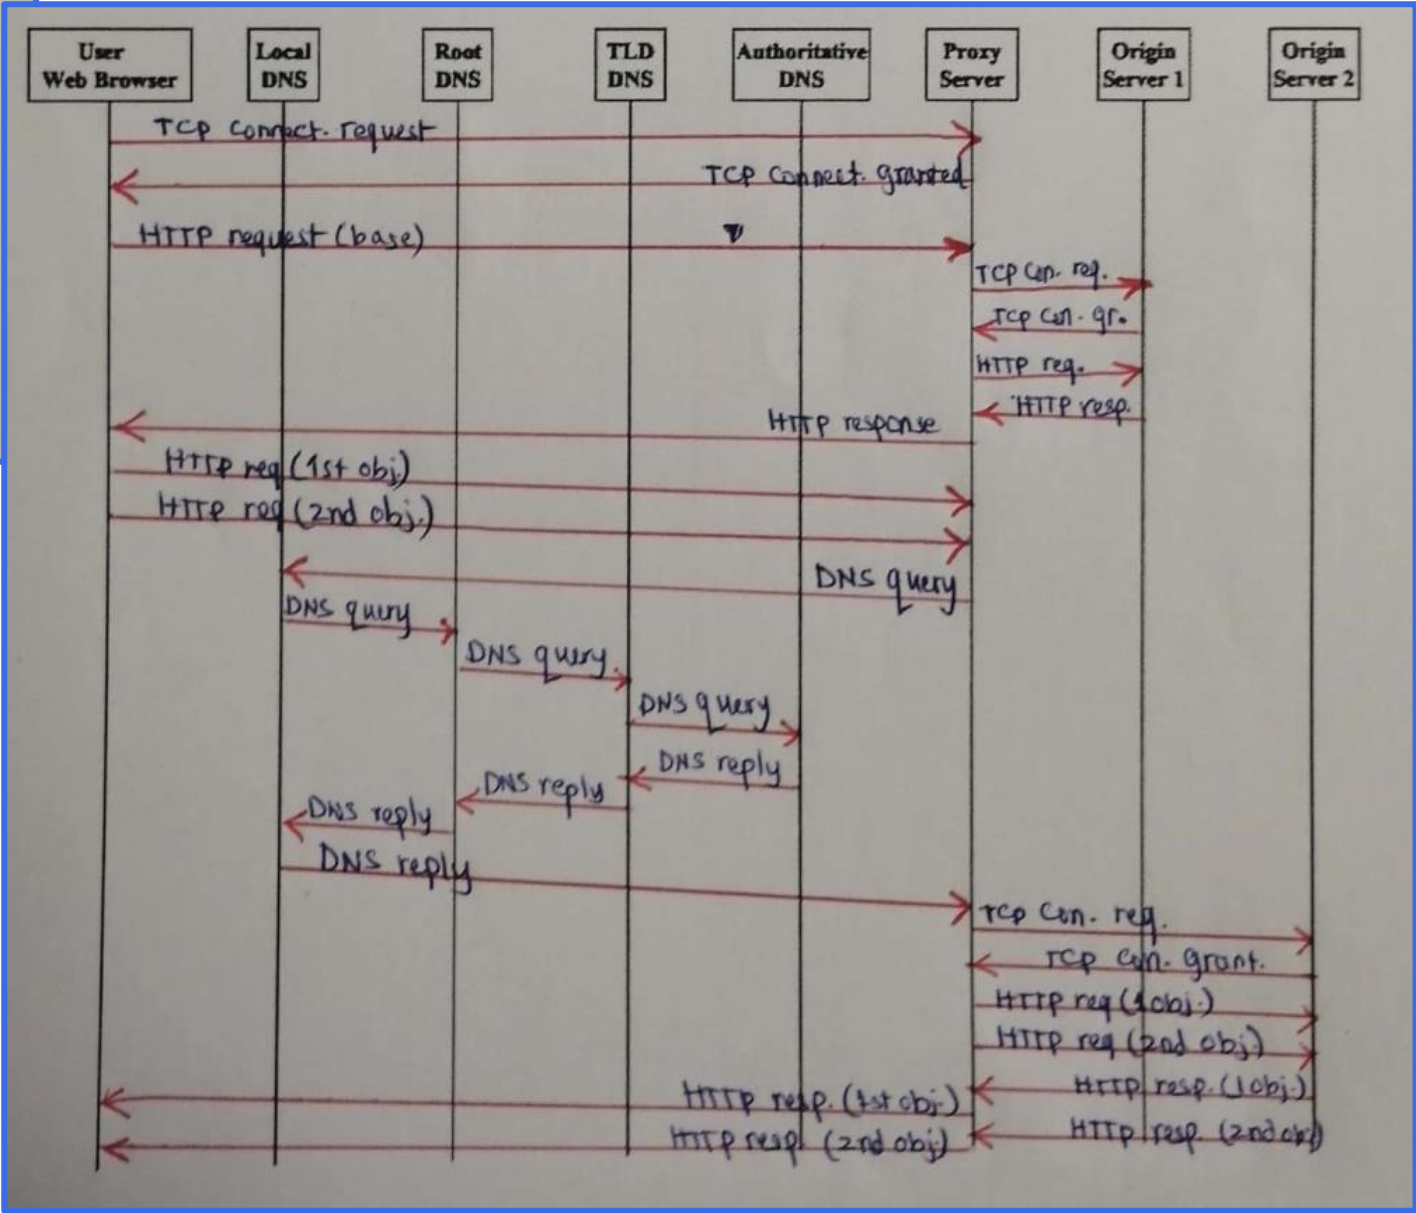 User
Web Browser
Local
DNS
Root
DNS
TLD
DNS
Authoritative
DNS
Proxy
Server
Origin
Server 1
Origin
Server 2
TCP connect. request
TCP connect. granted
HTTP request (base)
TCP con. req.
TCP con. gr.
HTTP req.
HTTP resp.
HTTP response
HTTP req (1st obj.)
HTTP req (2nd obj.)
DNS query
DNS query
DNS query
DNS query
DNS reply
DNS reply
DNS reply
DNS reply
TCP con. req.
TCP con. grant.
HTTP req (1 obj.)
HTTP req (2nd obj.)
HTTP resp. (1 obj.)
HTTP resp. (1st obj.)
HTTP resp. (2nd obj)
HTTP resp. (2nd obj)